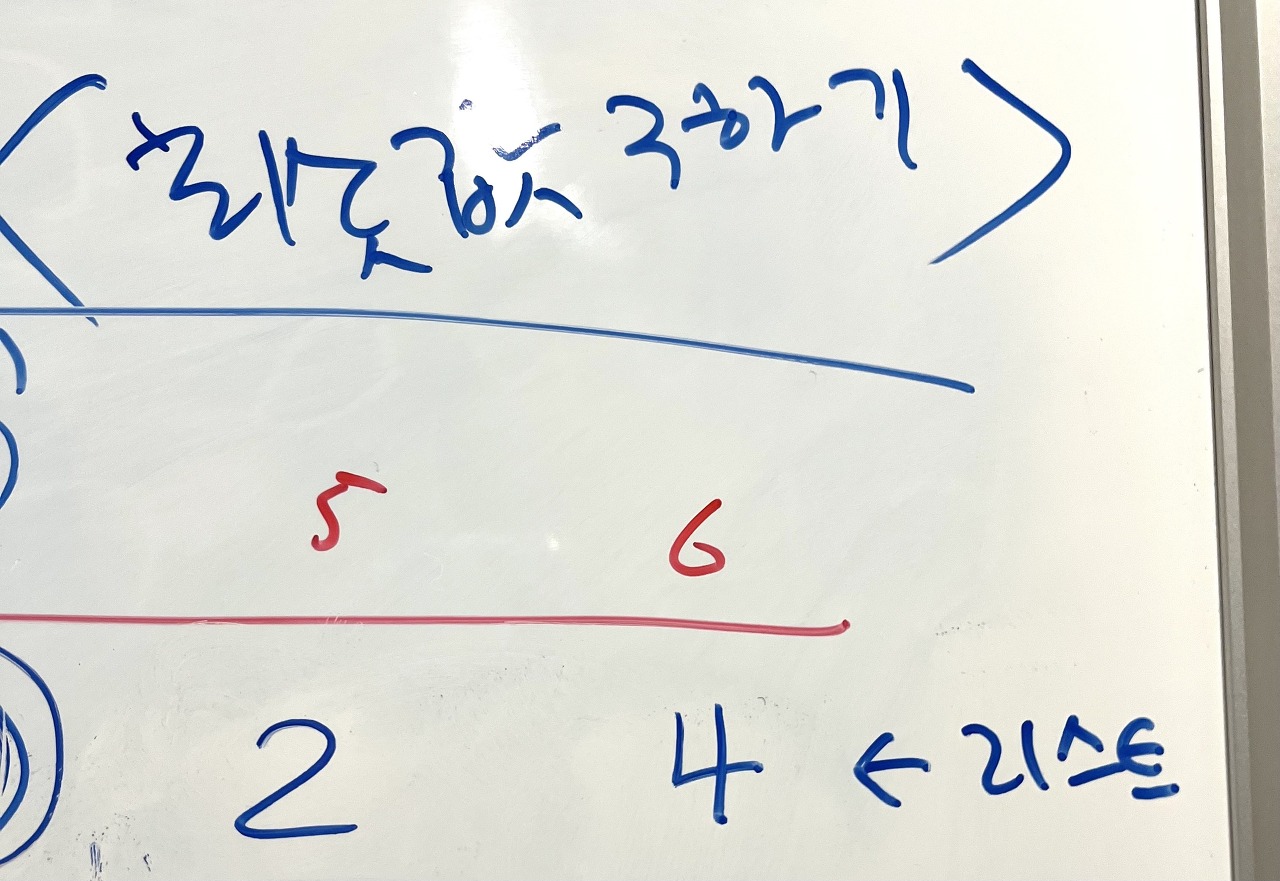 <최댓값 구하기>
5 6
2 4 ← 리스트